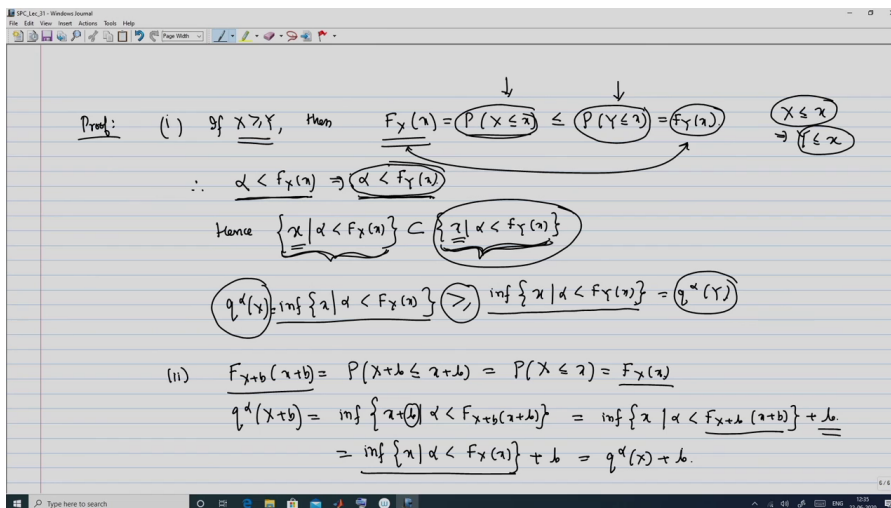 SPC_Lec_31 - Windows Journal
File Edit View Insert Actions Tools Help
Page Width
Proof: (i) If X ≥ Y, then F_X(x) = P(X ≤ x) ≤ P(Y ≤ x) = F_Y(x) X ≤ x
⇒ Y ≤ x
∴ α < F_X(x) ⇒ α < F_Y(x)
Hence {x | α < F_X(x)} ⊂ {x | α < F_Y(x)}
q^α(X) = inf {x | α < F_X(x)} ≥ inf {x | α < F_Y(x)} = q^α(Y)
(ii) F_{X+b}(x+b) = P(X+b ≤ x+b) = P(X ≤ x) = F_X(x)
q^α(X+b) = inf {x+b | α < F_{X+b}(x+b)} = inf {x | α < F_{X+b}(x+b)} + b.
= inf {x | α < F_X(x)} + b = q^α(X) + b.
6/6
Type here to search
ENG
12:35
22-06-2020